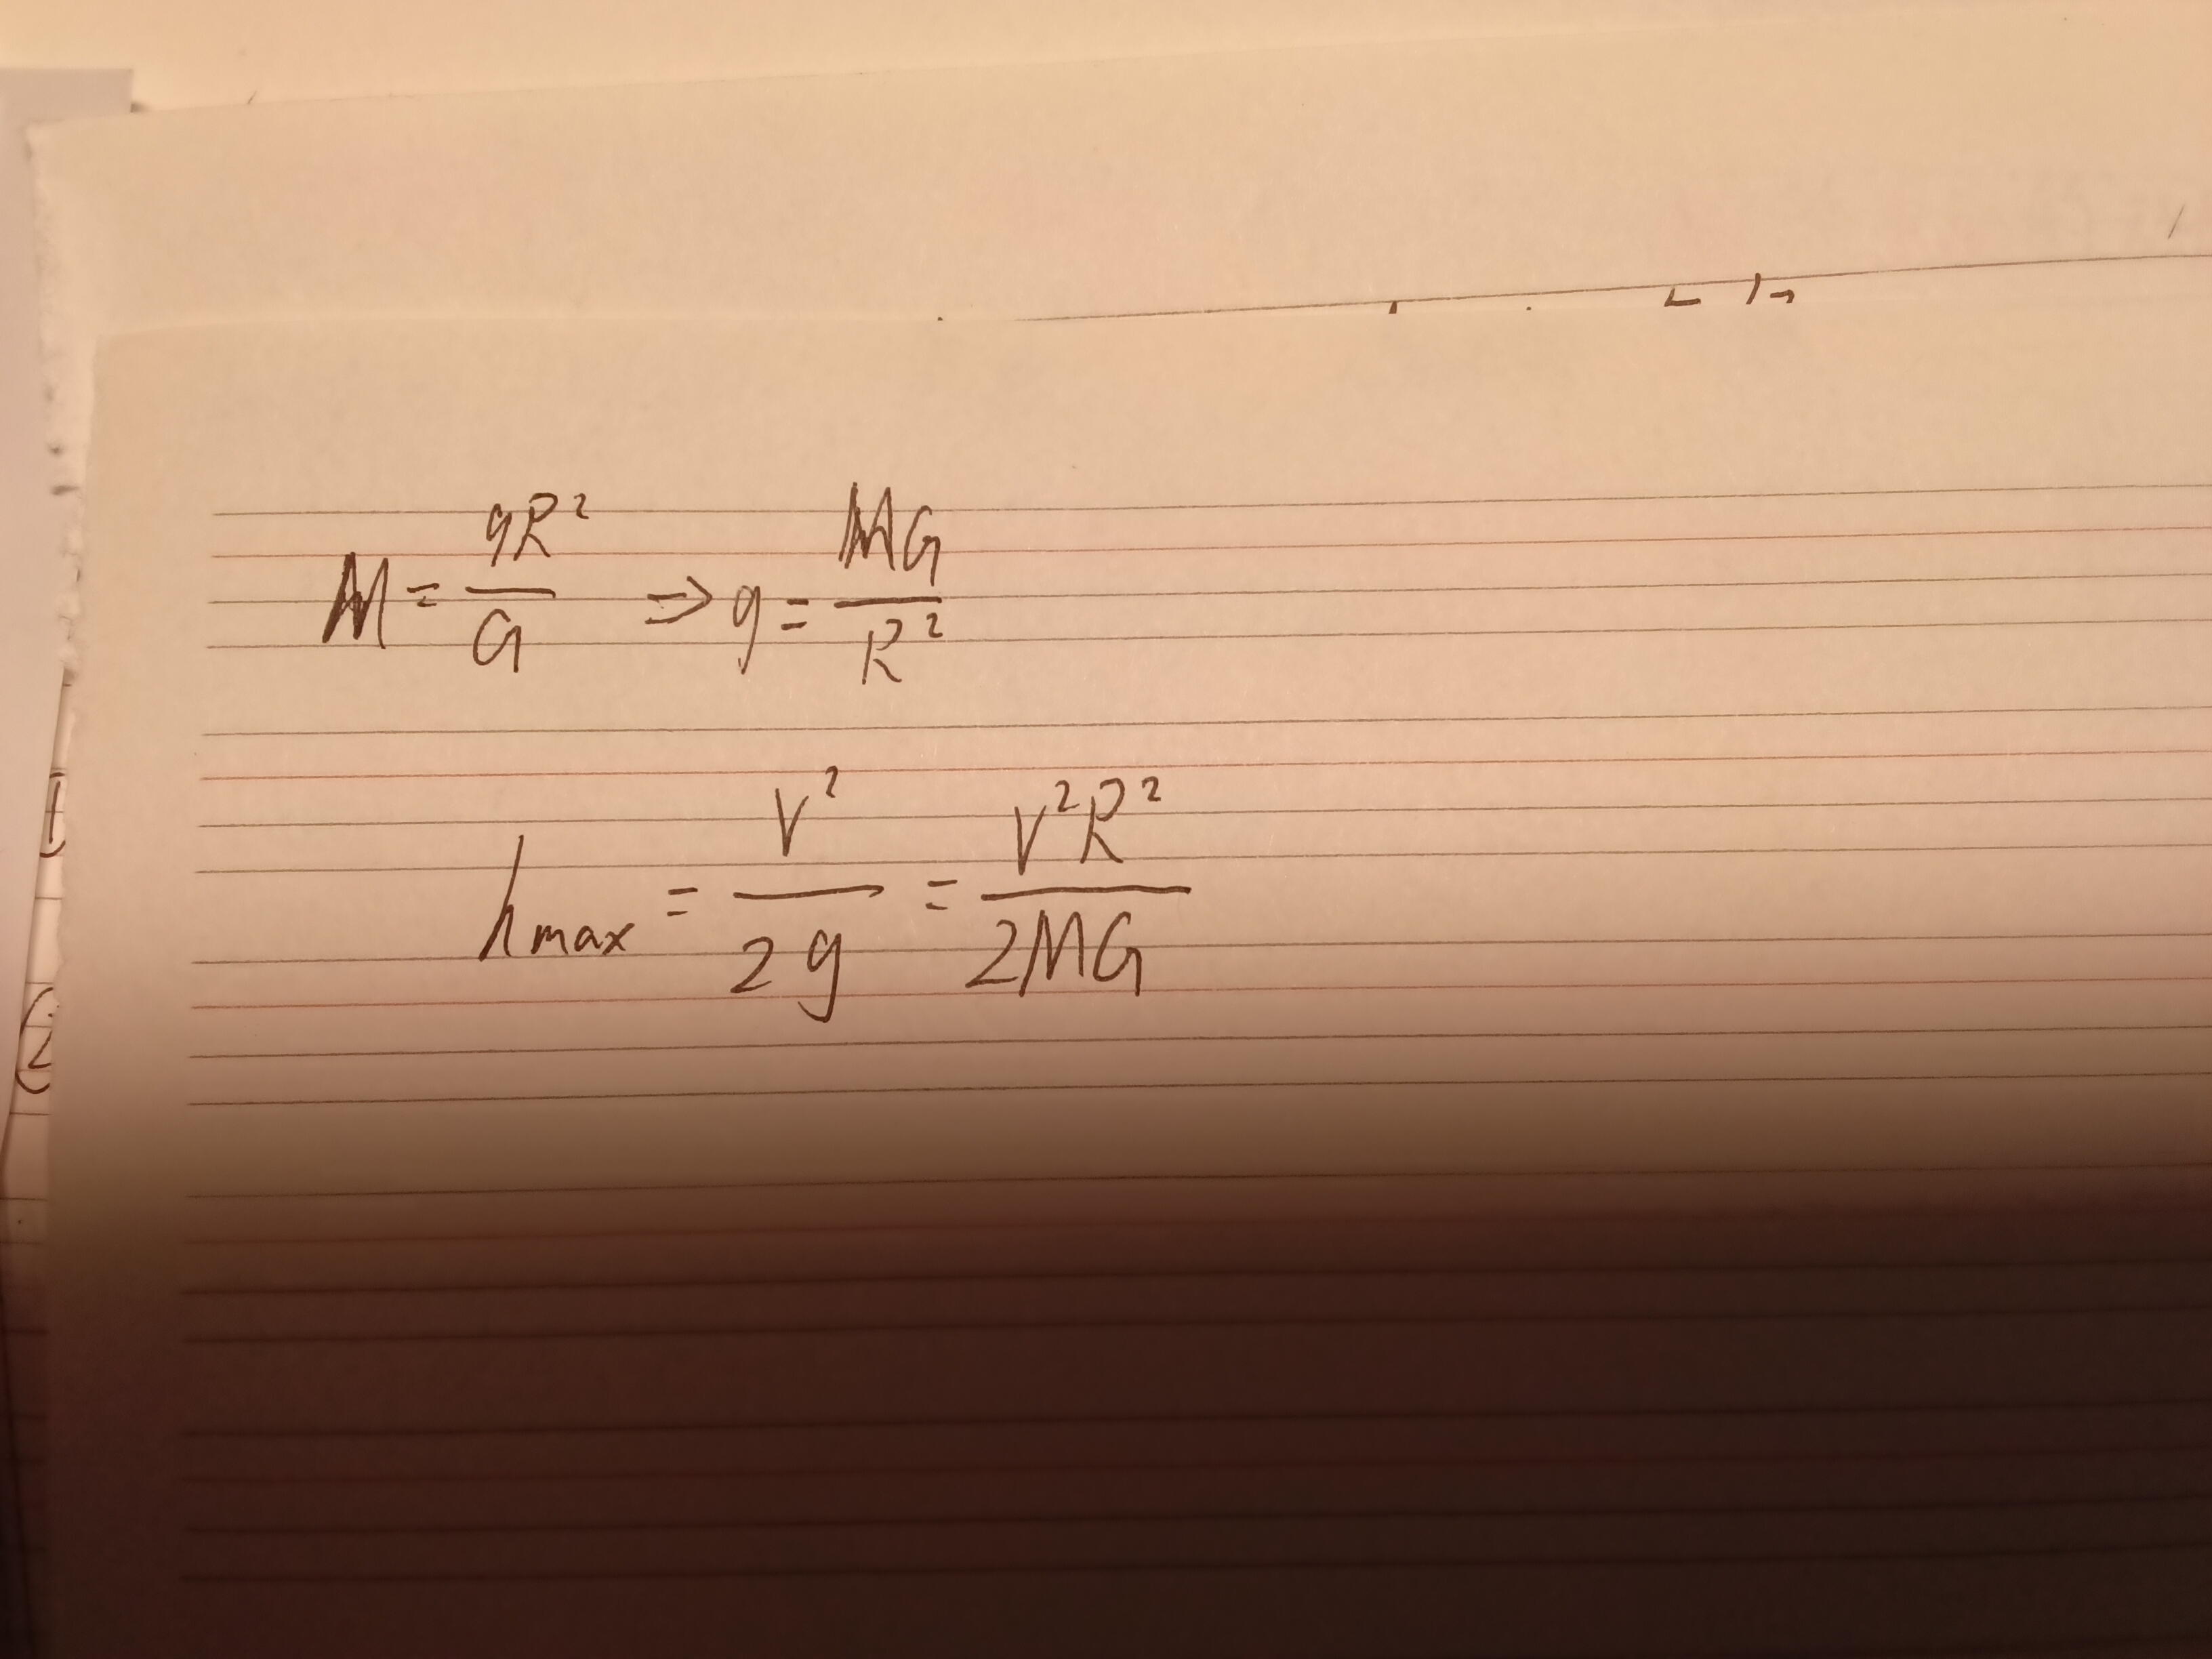 M = gR² / G ⇒ g = MG / R²
h max = V² / 2g = V²R² / 2MG
1)
(2